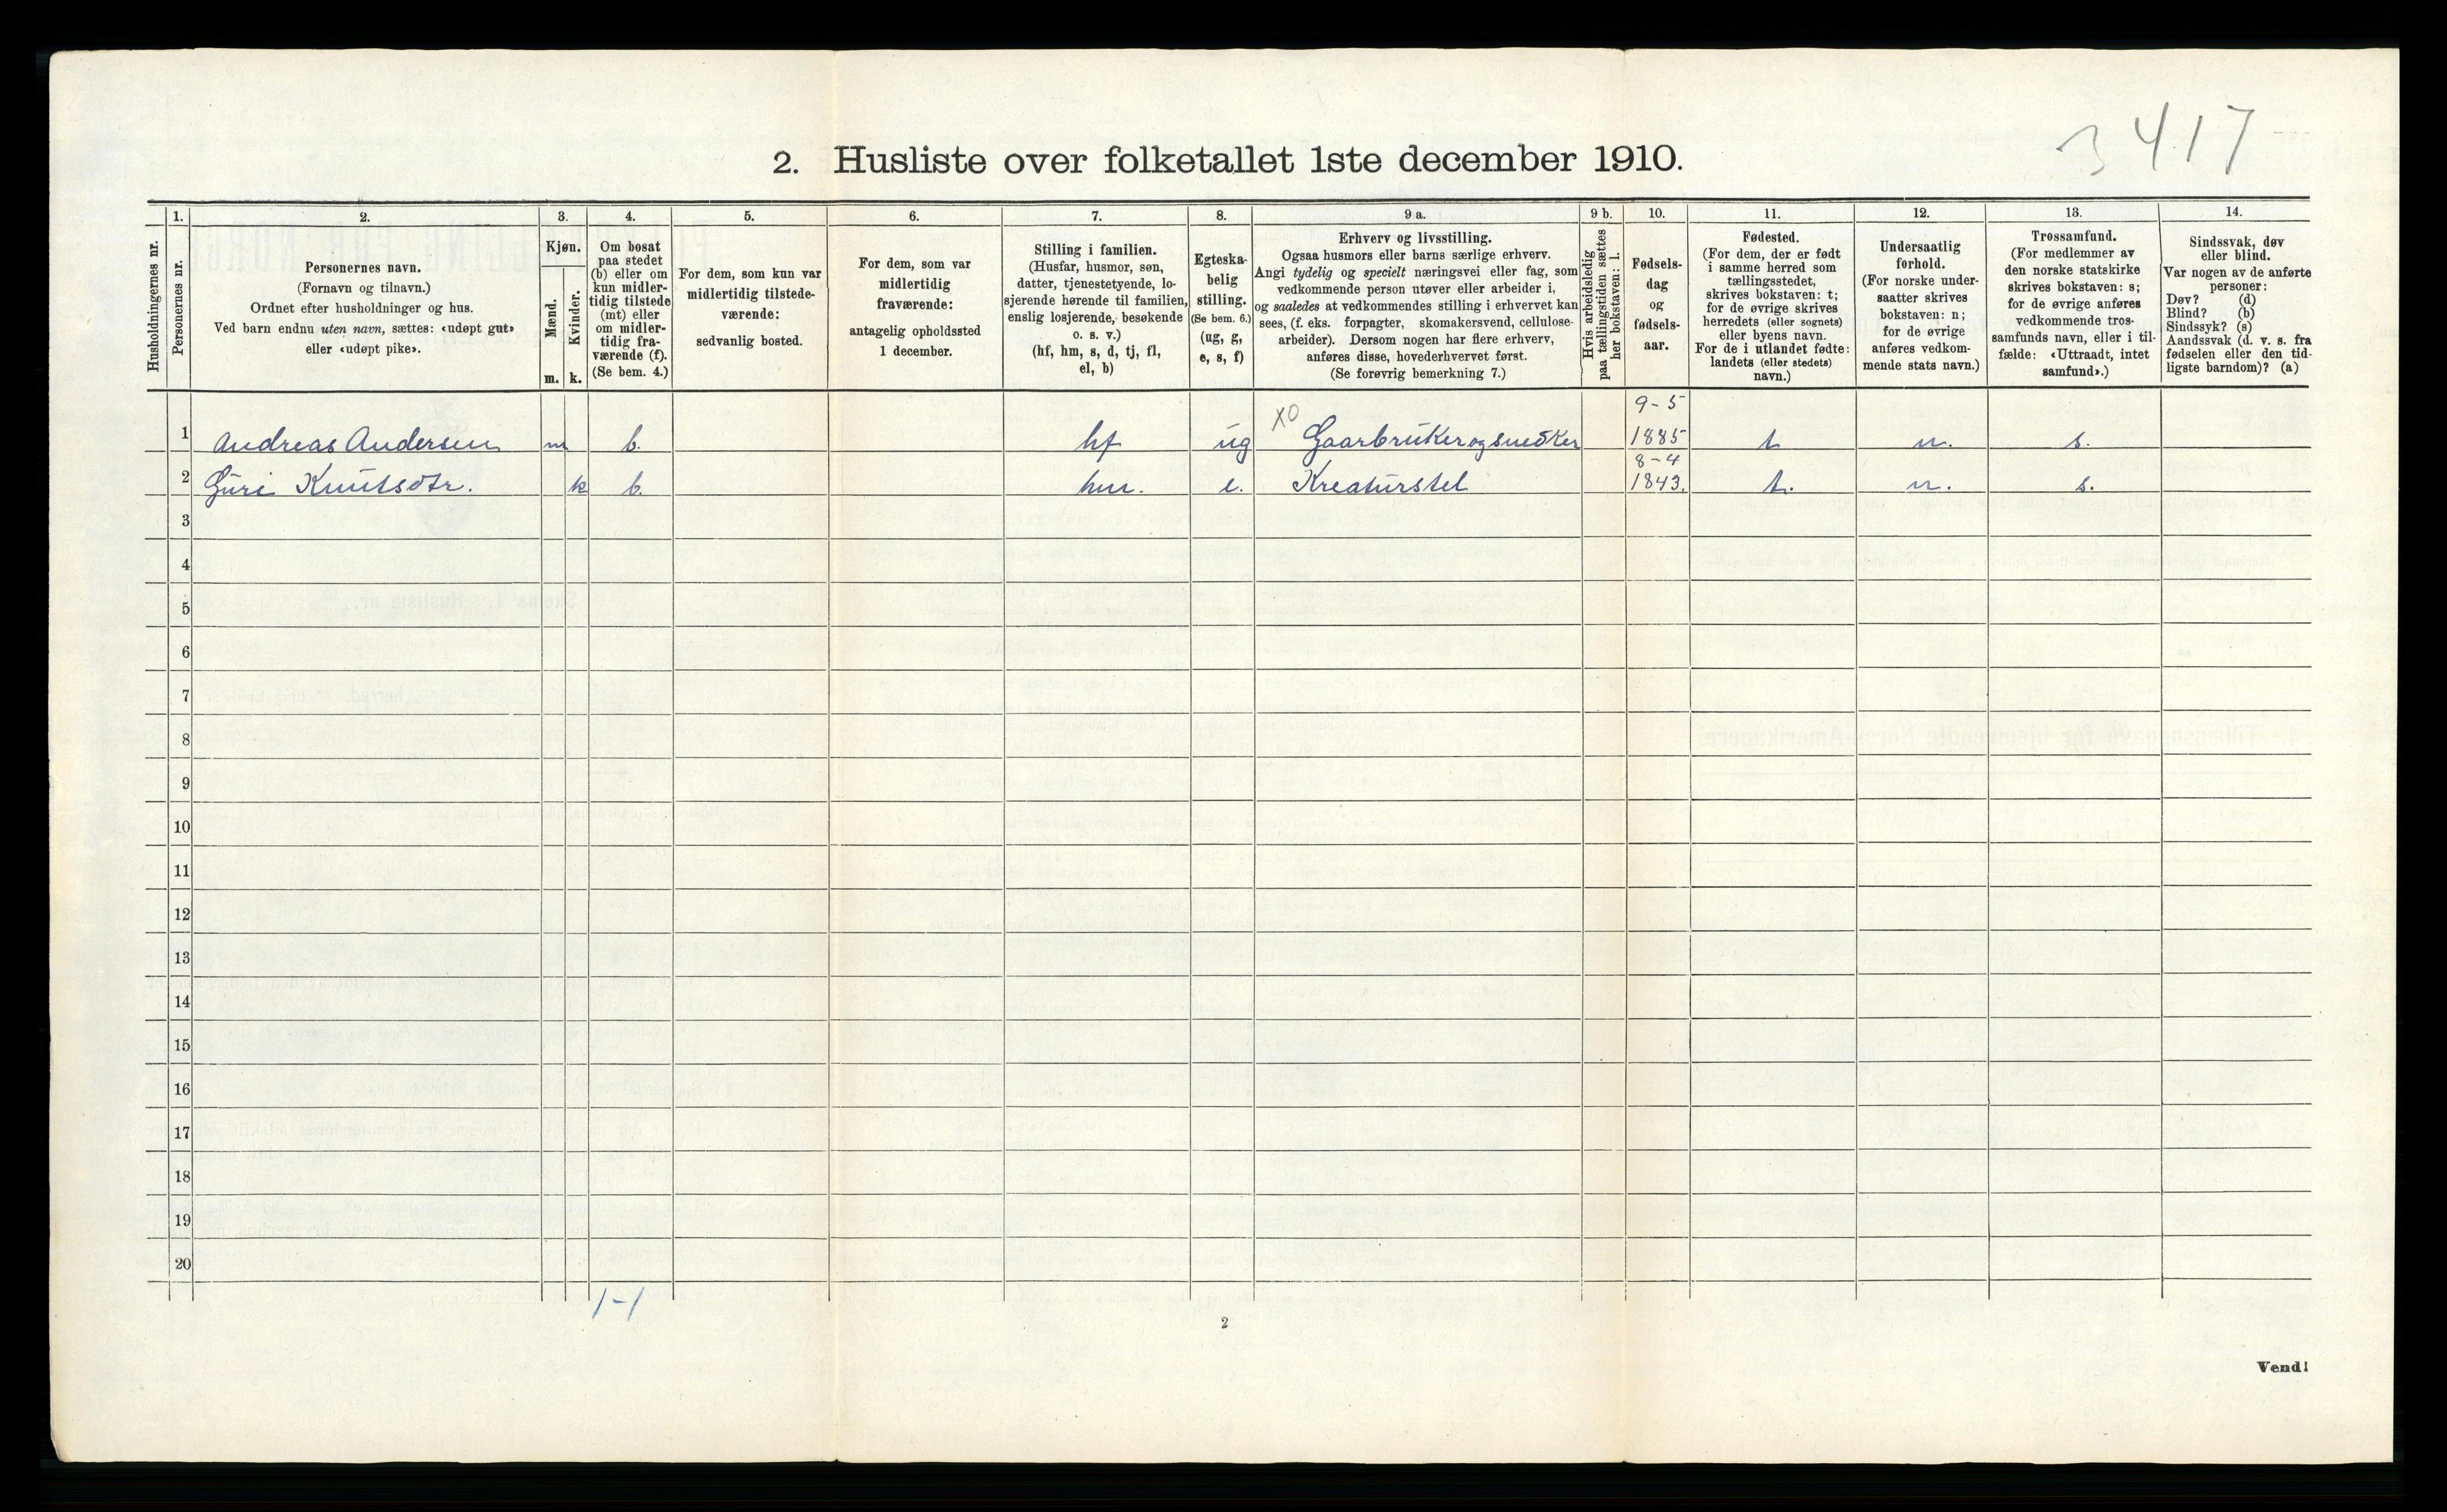 3417
2. Husliste over folketallet 1ste december 1910.
Husholdningernes nr.
1.
Personernes nr.
2.
Personernes navn.
(Fornavn og tilnavn.)
Ordnet efter husholdninger og hus.
Ved barn endnu uten navn, sættes: «udøpt gut»
eller «udøpt pike».
3.
Kjøn.
Mænd.
m.
Kvinder.
k.
4.
Om bosat
paa stedet
(b) eller om
kun midler-
tidig tilstede
(mt) eller
om midler-
tidig fra-
værende (f).
(Se bem. 4.)
5.
For dem, som kun var
midlertidig tilstede-
værende:
sedvanlig bosted.
6.
For dem, som var
midlertidig
fraværende:
antagelig opholdssted
1 december.
7.
Stilling i familien.
(Husfar, husmor, søn,
datter, tjenestetyende, lo-
sjerende hørende til familien,
enslig losjerende, besøkende
o. s. v.)
(hf, hm, s, d, tj, fl,
el, b)
8.
Egteska-
belig
stilling.
(Se bem. 6.)
(ug, g,
e, s, f)
9 a.
Erhverv og livsstilling.
Ogsaa husmors eller barns særlige erhverv.
Angi tydelig og specielt næringsvei eller fag, som
vedkommende person utøver eller arbeider i,
og saaledes at vedkommendes stilling i erhvervet kan
sees, (f. eks. forpagter, skomakersvend, cellulose-
arbeider). Dersom nogen har flere erhverv,
anføres disse, hovederhvervet først.
(Se forøvrig bemerkning 7.)
9 b.
Hvis arbeidsledig
paa tællingstiden sættes
her bokstaven: l.
10.
Fødsels-
dag
og
fødsels-
aar.
11.
Fødested.
(For dem, der er født
i samme herred som
tællingsstedet,
skrives bokstaven: t;
for de øvrige skrives
herredets (eller sognets)
eller byens navn.
For de i utlandet fødte:
landets (eller stedets)
navn.)
12.
Undersaatlig
forhold.
(For norske under-
saatter skrives
bokstaven: n;
for de øvrige
anføres vedkom-
mende stats navn.)
13.
Trossamfund.
(For medlemmer av
den norske statskirke
skrives bokstaven: s;
for de øvrige anføres
vedkommende tros-
samfunds navn, eller i til-
fælde: «Uttraadt, intet
samfund».)
14.
Sindssvak, døv
eller blind.
Var nogen av de anførte
personer:
Døv? (d)
Blind? (b)
Sindssyk? (s)
Aandssvak (d. v. s. fra
fødselen eller den tid-
ligste barndom)? (a)
X0 9-5
1 Andreas Andersen m b. hf ug Gaarbruker og snedker 1885 t n. s.
8-4
2 Guri Knutsdtr. k b. hm. e. Kreaturstel 1843. t. n. s.
3
4
5
6
7
8
9
10
11
12
13
14
15
16
17
18
19
20
1-1
2
Vend!